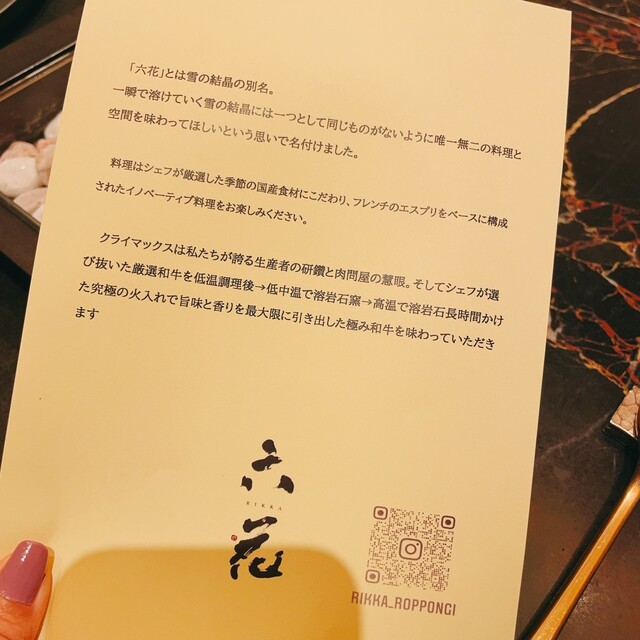 「六花」とは雪の結晶の別名。
一瞬で溶けていく雪の結晶には一つとして同じものがないように唯一無二の料理と
空間を味わってほしいという思いで名付けました。
料理はシェフが厳選した季節の国産食材にこだわり、フレンチのエスプリをベースに構成
されたイノベーティブ料理をお楽しみください。
クライマックスは私たちが誇る生産者の研鑽と肉問屋の慧眼。そしてシェフが選
び抜いた厳選和牛を低温調理後→低中温で溶岩石窯→高温で溶岩石長時間かけ
た究極の火入れで旨味と香りを最大限に引き出した極み和牛を味わっていただき
ます
六
RIKKA
花
RIKKA_ROPPONGI